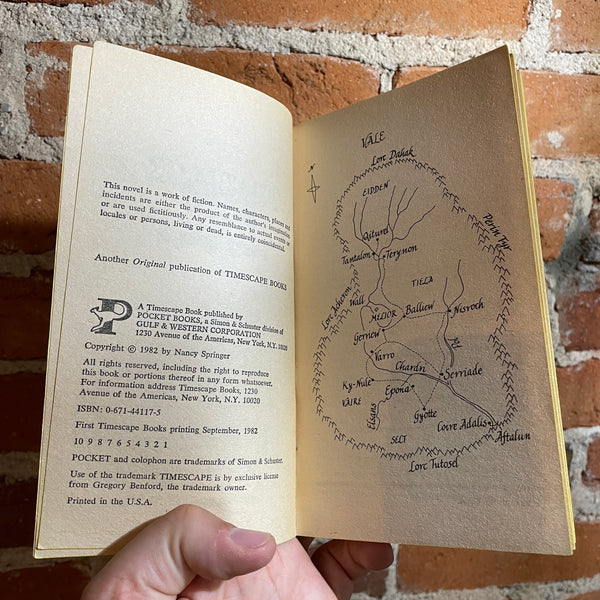 This novel is a work of fiction. Names, characters, places and
incidents are either the product of the author's imagination
or are used fictitiously. Any resemblance to actual events or
locales or persons, living or dead, is entirely coincidental.
Another Original publication of TIMESCAPE BOOKS
P
A Timescape Book published by
POCKET BOOKS, a Simon & Schuster division of
GULF & WESTERN CORPORATION
1230 Avenue of the Americas, New York, N.Y. 10020
Copyright © 1982 by Nancy Springer
All rights reserved, including the right to reproduce
this book or portions thereof in any form whatsoever.
For information address Timescape Books, 1230
Avenue of the Americas, New York, N.Y. 10020
ISBN: 0-671-44117-5
First Timescape Books printing September, 1982
10 9 8 7 6 5 4 3 2 1
POCKET and colophon are trademarks of Simon & Schuster.
Use of the trademark TIMESCAPE is by exclusive license
from Gregory Benford, the trademark owner.
Printed in the U.S.A.
VALE
Lorc Dahak
EIDDEN
Perin Tyr
Qiturel
Tantalon
Terynon
Lorc Acheron
TIELA
Wall
MELIOR
Balliew
Nisroch
Gernew
Varro
Chardri
Ky-Nule
Serriade
VAIRE
Epona
Elsans
Gyotte
Loire Adalis
SELT
Aftalun
Lorc Tutosel